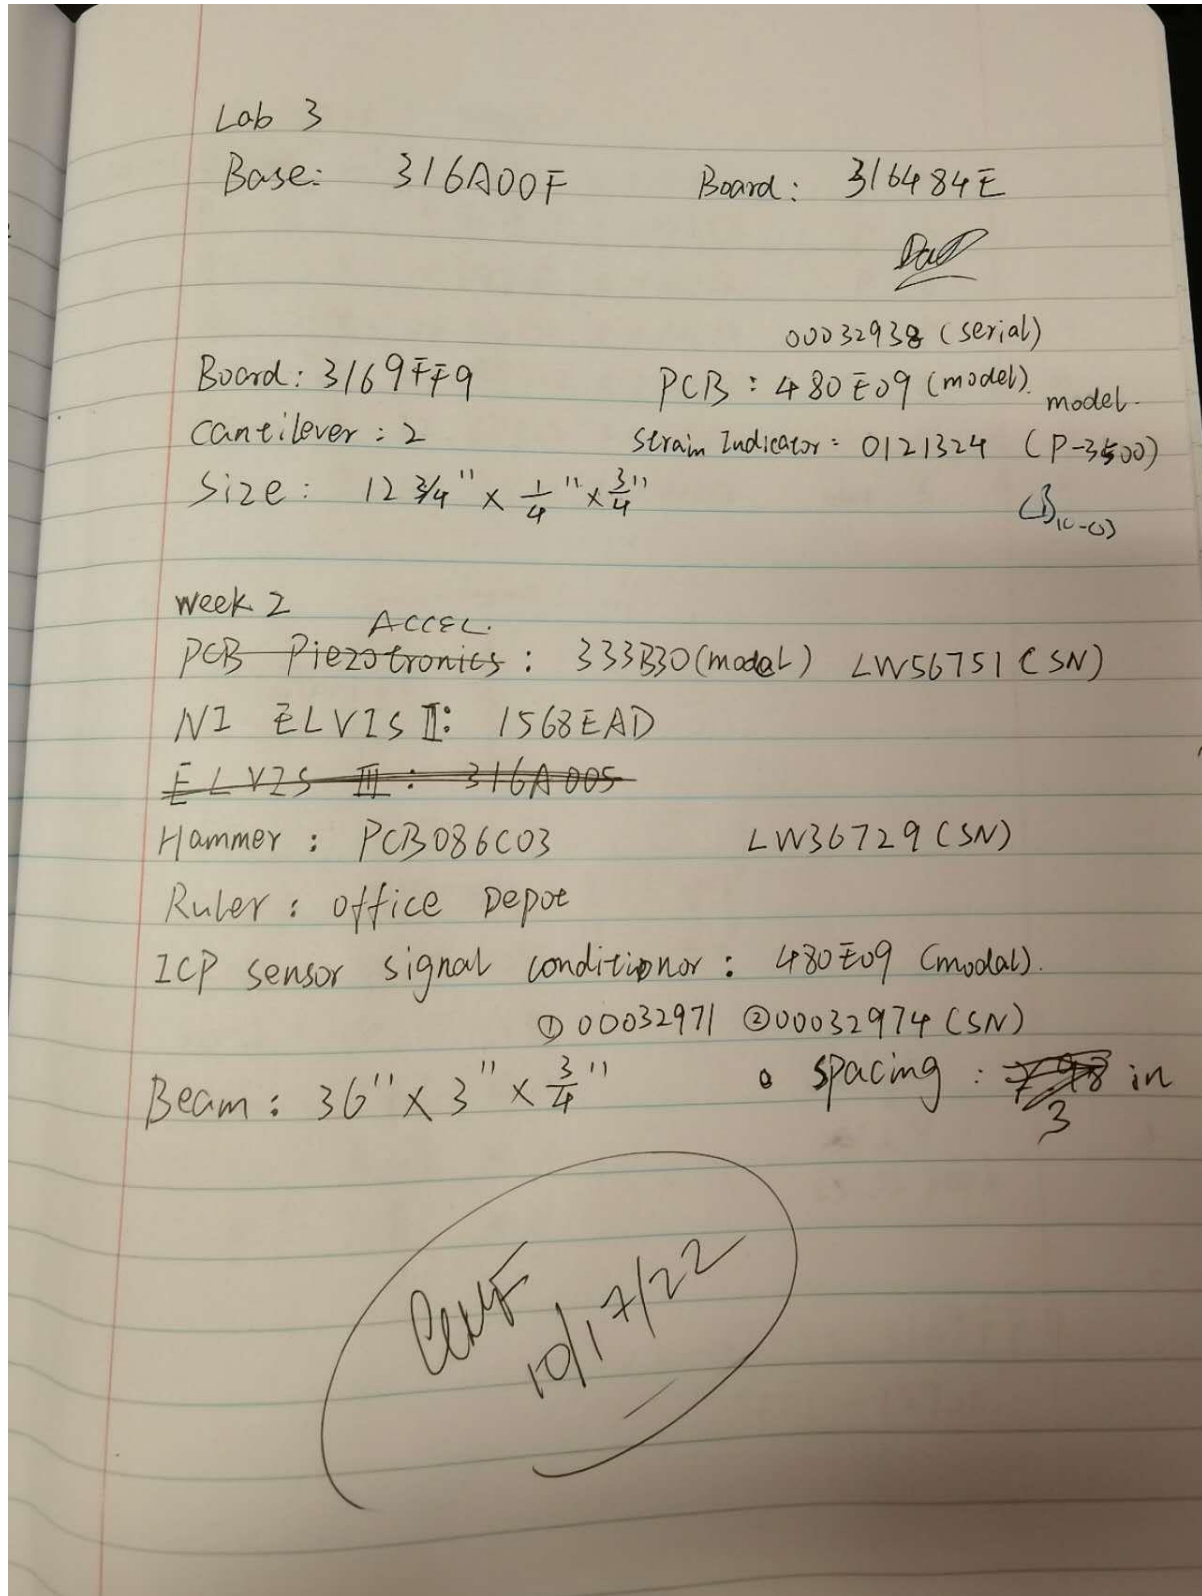 Lab 3
Base: 316A00F Board: 316484E
00032938 (serial)
Board: 3169FF9 PCB: 480E09 (model).
model.
Cantilever: 2 Strain Indicator: 0121324 (P-3500)
Size: 12 3/4" x 1/4" x 3/4"
week 2
ACCEL.
PCB Piezotronics: 333B30 (modal) LW56751 (SN)
NI ELVIS II: 1568EAD
ELVIS III: 316A005
Hammer: PCB086C03 LW36729 (SN)
Ruler: office Depot
ICP sensor signal conditionor: 480E09 (modal).
① 00032971 ② 00032974 (SN)
Beam: 36" x 3" x 3/4" spacing: in
3
10/17/22